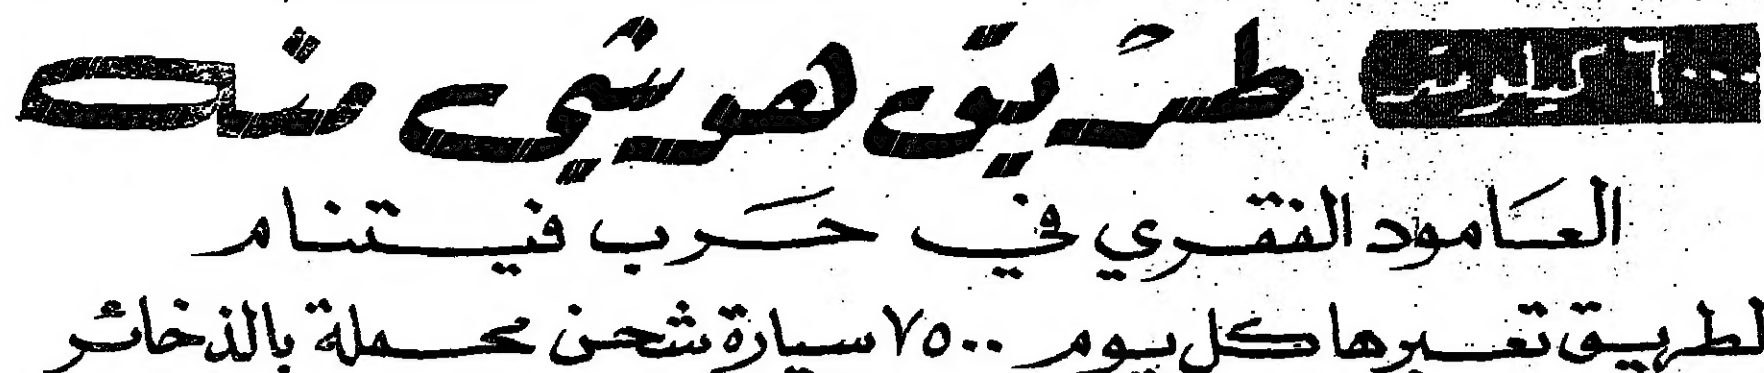 ٦٠٠٠ كيلومتر طريق هوشي منه
العامود الفقري في حرب فيتنام
لطريق تعبرها كل يوم ٧٥٠٠ سيارة شحن محملة بالذخائر